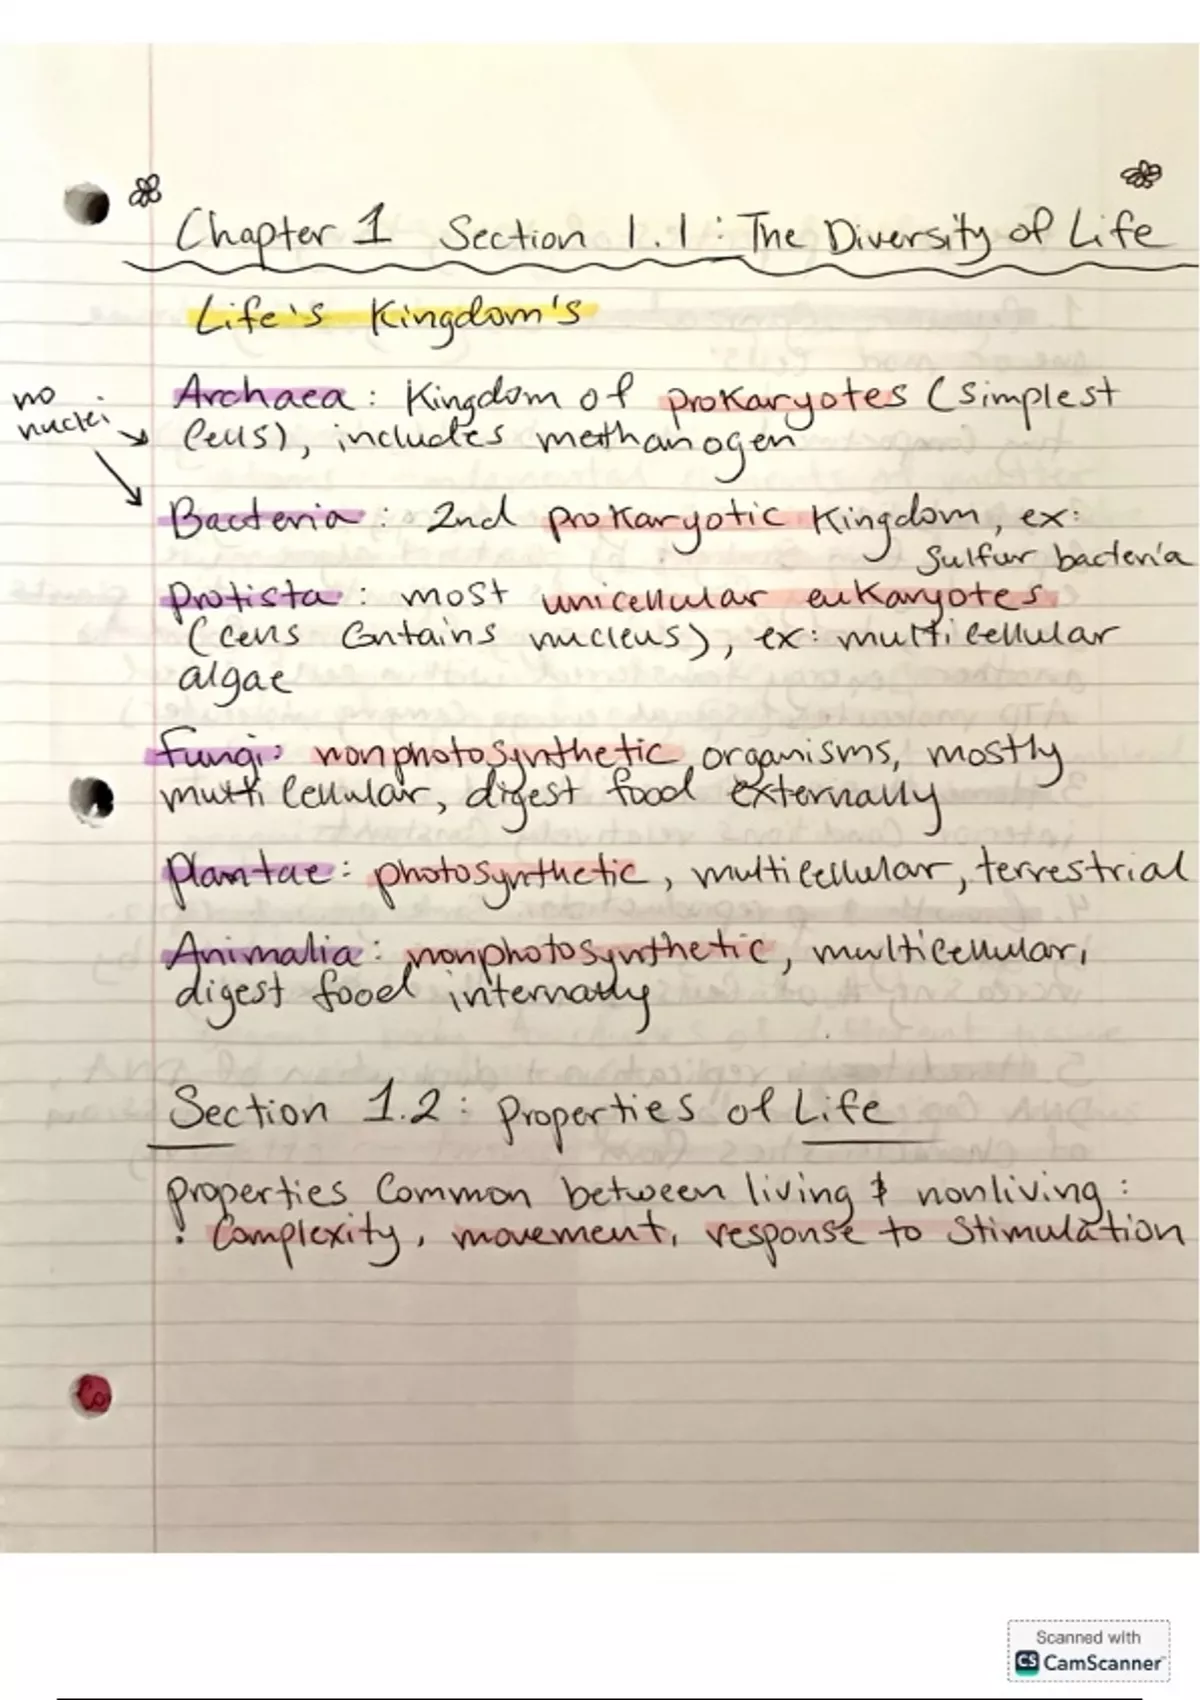 Chapter 1 Section 1.1: The Diversity of Life
Life's Kingdom's
no
nuclei
Archaea: Kingdom of prokaryotes (simplest
cells), includes methanogen
Bacteria: 2nd prokaryotic Kingdom, ex:
Sulfur bacteria
Protista: most unicellular eukaryotes
(cells contains nucleus), ex: multicellular
algae
Fungi: nonphotosynthetic organisms, mostly
multicellular, digest food externally
Plantae: photosynthetic, multicellular, terrestrial
Animalia: nonphotosynthetic, multicellular,
digest food internally
Section 1.2: Properties of Life
properties common between living & nonliving:
: Complexity, movement, response to stimulation
Scanned with
CS CamScanner